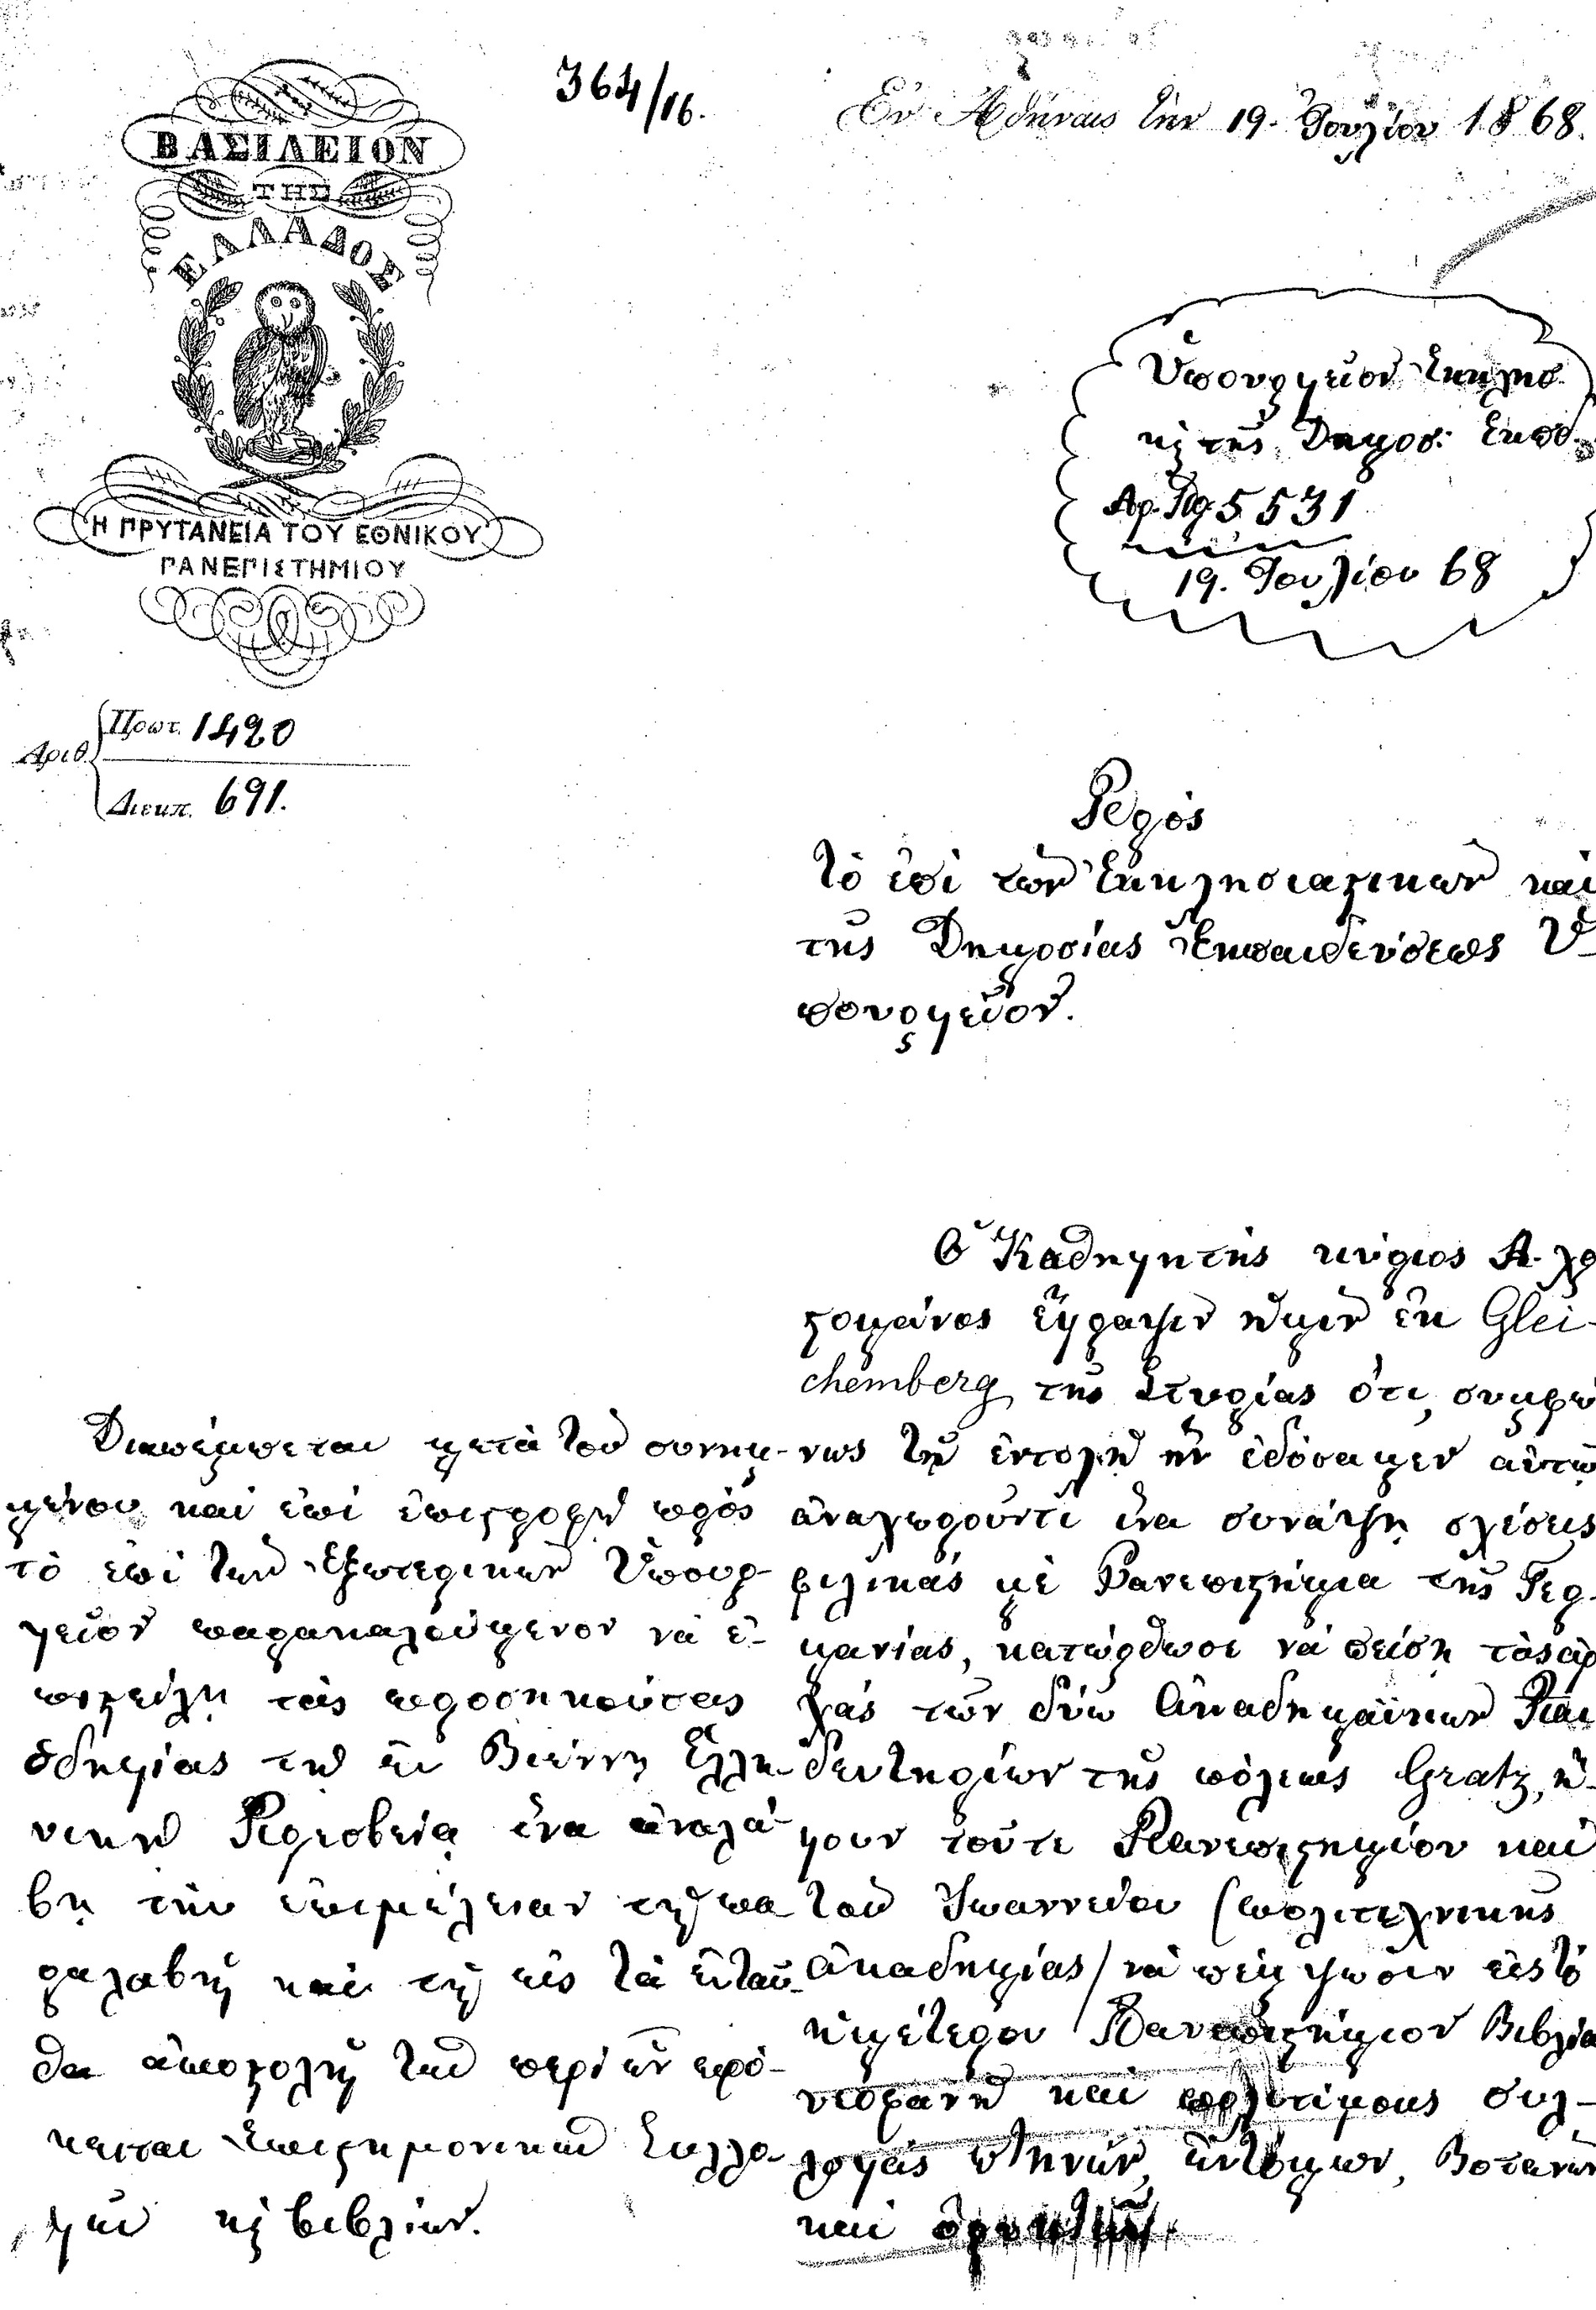 364/16.
Ἐν Ἀθήναις τὴν 19. Ἰουλίου 1868.
ΒΑΣΙΛΕΙΟΝ
ΤΗΣ
ΕΛΛΑΔΟΣ
Η ΠΡΥΤΑΝΕΙΑ ΤΟΥ ΕΘΝΙΚΟΥ
ΠΑΝΕΠΙΣΤΗΜΙΟΥ
Ἀριθ.
Πρωτ. 1420
Διεκπ. 691.
Ὑπουργεῖον Ἐκκλησ.
κ τῆς Δημοσ. Ἐκπδ.
Αρ. Πρ 5531
19. Ἰουλίου 68
Πρὸς
Τὸ ἐπὶ τῶν Ἐκκλησιαστικῶν καὶ
τῆς Δημοσίας Ἐκπαιδεύσεως Ὑ-
πουργεῖον.
Ὁ Καθηγητὴς κύριος Α. Χρ
στομάνος ἔγραψεν ἡμῖν ἐκ Glei-
chemberg τῆς Στυρίας ὅτι, συμφώ
νως τῇ ἐντολῇ ἣν ἐδόσαμεν αὐτῷ
ἀναχωροῦντι ἵνα συνάψῃ σχέσεις
φιλικάς μὲ Πανεπιστήμια τῆς Γερ-
μανίας, κατώρθωσε νὰ πείσῃ τὰς ἀρ
χάς τῶν δύω Ἀκαδημαϊκῶν Παι
δευτηρίων τῆς πόλεως Gratz, ἤ-
γουν τοῦτε Πανεπιστημίου καὶ
τοῦ Ἰωαννείου (πολιτεχνικῆς
ἀκαδημίας) νὰ πέμψωσιν εἰς τὸ
ἡμέτερον Πανεπιστήμιον Βιβλία
νεοφανῆ καὶ πολυτίμους συλ-
λογάς πτηνῶν, ἐντόμων, Βοτανῶν
καὶ ὀρυκτῶν.
Διαπέμπεται μετὰ τοῦ συνημ-
μένου καὶ ἐπὶ ἐπιστροφῇ πρὸς
τὸ ἐπὶ τῶν Ἐξωτερικῶν Ὑπουρ-
γεῖον παρακαλούμενον νὰ ἐ-
πιστείλῃ τὰς προσηκούσας
ὁδηγίας τῇ ἐν Βιέννῃ Ἑλλη-
νικῇ Πρεσβείᾳ ἵνα ἀναλά-
βῃ τὴν ἐπιμέλειαν τῇ πα
ραλαβῇ καὶ τῇ εἰς τὰ ἐνταῦ-
θα ἀποστολῇ τῶν περὶ ὧν πρό-
κειται Ἐπιστημονικῶν Συλλο-
γῶν κ βιβλίων.